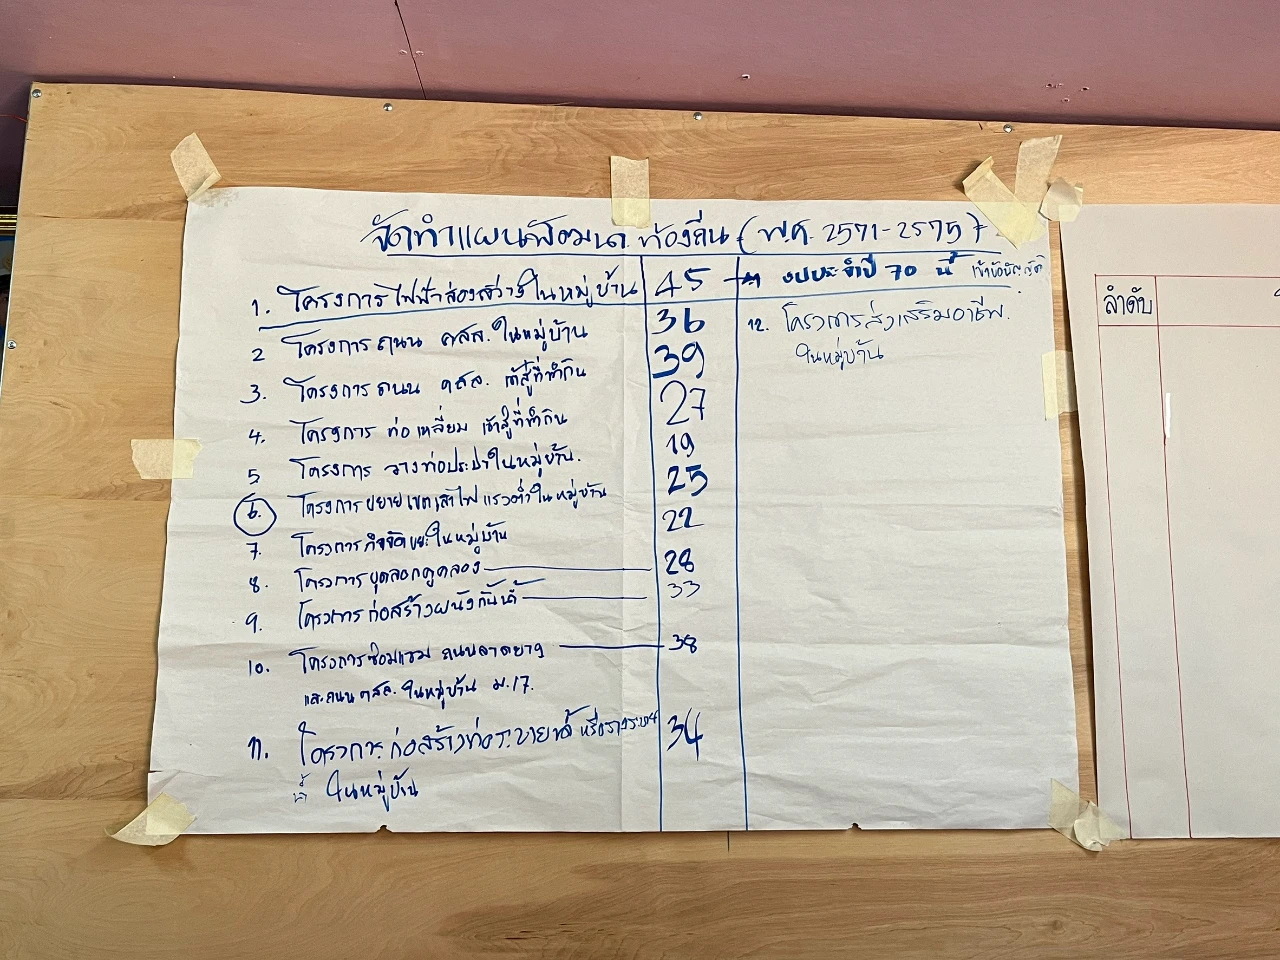 จัดทำแผนพัฒนา ท้องถิ่น (พ.ศ. 2571-2575)
1. โครงการไฟฟ้าส่องสว่างในหมู่บ้าน 45 → งบประจำปี 70 นี้ เข้าข้อบัญญัติ
2 โครงการ ถนน คสล. ในหมู่บ้าน 36
3. โครงการ ถนน คสล. เข้าสู่ที่ทำกิน 39
4. โครงการ ท่อเหลี่ยม เข้าสู่ที่ทำกิน 27
5 โครงการ วางท่อประปาในหมู่บ้าน. 19
6. โครงการขยายเขตเสาไฟ แรงต่ำในหมู่บ้าน 25
7. โครงการกำจัดขยะในหมู่บ้าน 22
8. โครงการขุดลอกคูคลอง 28
9. โครงการก่อสร้างผนังกั้นน้ำ 33
10. โครงการซ่อมแซม ถนนลาดยาง 38
และถนน คสล. ในหมู่บ้าน ม.17.
11. โครงการก่อสร้างท่อระบายน้ำ หรือรางระบาย 34
น้ำ ในหมู่บ้าน
12. โครงการส่งเสริมอาชีพ.
ในหมู่บ้าน
ลำดับ